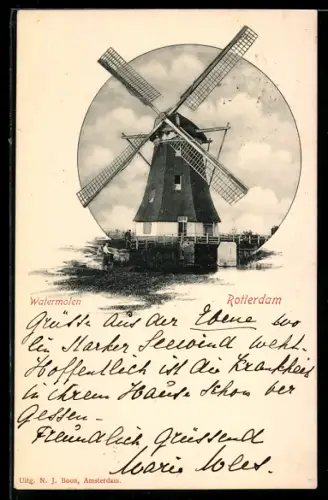 Watermolen
Rotterdam
Grüsse aus der Ebene wo
ein starker Seewind weht.
Hoffentlich ist die Krankheit
in ihrem Hause schon ver
gessen.-
Freundlich grüssend
Marie
Uitg. N. J. Boon, Amsterdam.